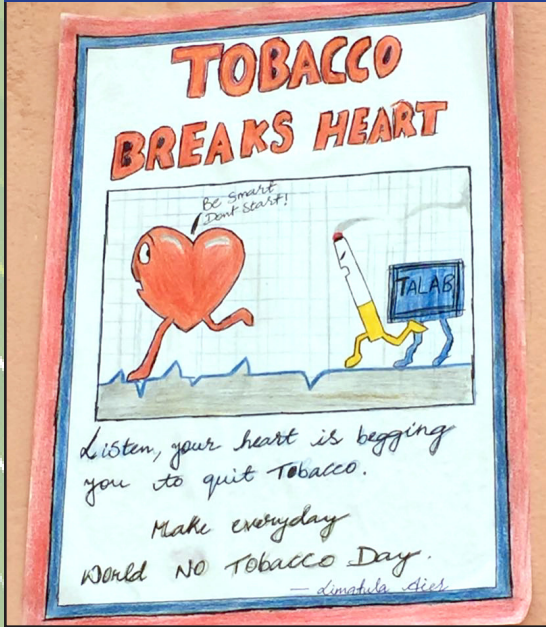 TOBACCO
BREAKS HEART
Be Smart
Dont Start!
TALAB
Listen, your heart is begging
you to quit Tobacco.
Make everyday
World NO Tobacco Day.
— Limatula Aier